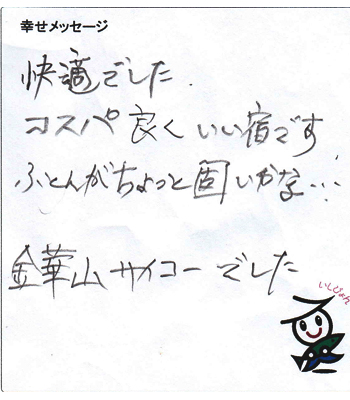 幸せメッセージ
快適でした.
コスパ良くいい宿です
ふとんがちょっと固いかな…
金華山サイコーでした
いしぴょん